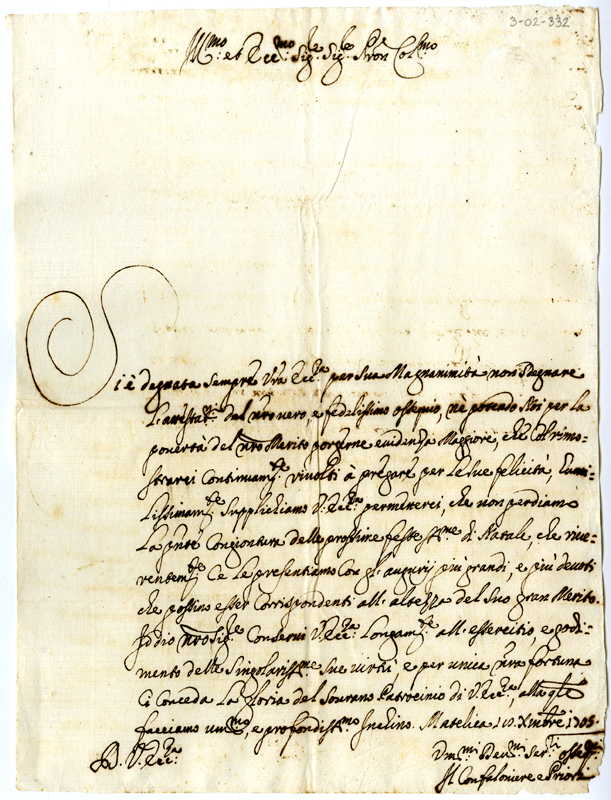 3-02-332
Ill:mo et Ecc:mo Sig:re Sig:re Pron Col:mo
Si è degnata sempre Vra Ecc:za per sua Magnanimità non sdegnare
l'attestat: del nro vero, e fedelissimo ossequio, nè potendo Noi per la
povertà del nro Merito porgerne evidenza Maggiore, che col rimo-
strarci Continuam:te rivolti à pregare per le sue felicità, humi-
lissimam:te supplichiamo V: Ecc:za permetterci, che non perdiamo
la pnte Congiontura delle prossime feste SS:me di Natale, che rive-
rentem:te Ce le presentiamo con gl'augurij più grandi, e più devoti
che possino esser Corrispondenti all'altezza del suo gran Merito.
Iddio nro Sig:re Conservi V: Ecc:za Longam:te all'essercitio, e godi-
mento delle singolariss:me sue virtù e per unica nra fortuna
Ci Conceda la gloria del sourano Patrocinio di V: Ecc:za, alla qle
facciamo um:mo, e profondiss:mo Inclino. Matelica 10 Xmbre 1705.
D. V: Ecc:za
Um:mi Dev:mi Ser:ri osseq:mi
Il Confaloniere e Priori